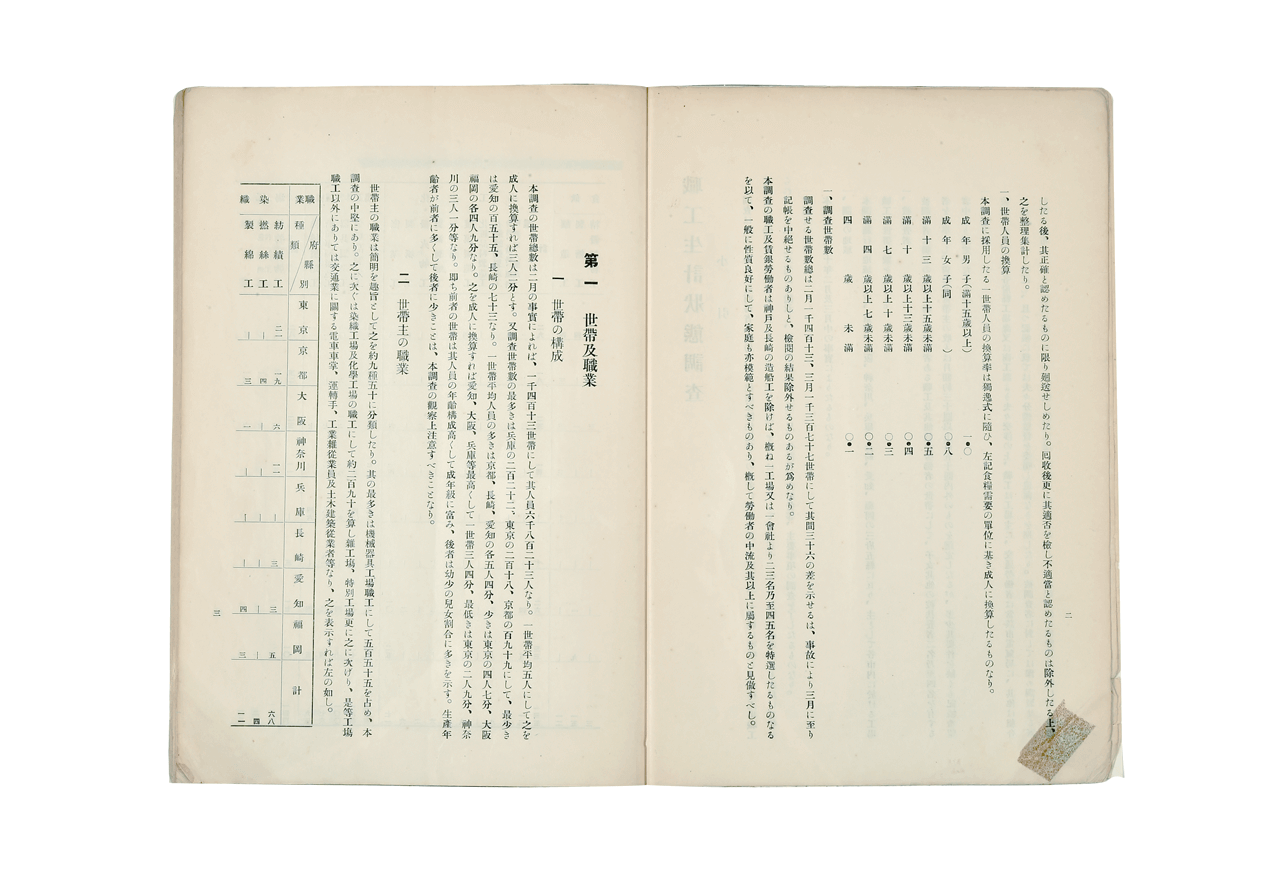 二
したる後、其正確と認めたるものに限り廻送せしめたり。回收後更に其適否を檢し不適當と認めたるものは除外したる上、
之を整理集計したり。
一、世帶人員の換算
本調査に採用したる一世帶人員の換算率は獨逸式に隨ひ、左記食糧需要の單位に基き成人に換算したるものなり。
成年男子(滿十五歲以上) 一・〇
成年女子(同 ) 〇・八
滿十三歲以上十五歲未滿 〇・五
滿十歲以上十三歲未滿 〇・四
滿七歲以上十歲未滿 〇・三
滿四歲以上七歲未滿 〇・二
四歲未滿 〇・一
一、調査世帶數
調査せる世帶數總は二月一千四百十三、三月一千三百七十七世帶にして其間三十六の差を示せるは、事故により三月に至り
記帳を中絕せるものありしと、檢閱の結果除外せるものあるが爲めなり。
本調査の職工及賃銀勞働者は神戶及長崎の造船工を除けば、槪ね一工場又は一會社より二三名乃至四五名を特選したるものなる
を以て、一般に性質良好にして、家庭も亦模範とすべきものあり、槪して勞働者の中流及其以上に屬するものと見做すべし。
第一 世帶及職業
一 世帶の構成
本調査の世帶總數は二月の事實によれば、一千四百十三世帶にして其人員六千八百二十三人なり。一世帶平均五人にして之を
成人に換算すれば三人二分とす。又調査世帶數の最多きは兵庫の二百二十二、東京の二百十八、京都の百九十九にして、最少き
は愛知の百五十五、長崎の七十三なり。一世帶平均人員の多きは京都、長崎、愛知の各五人四分、少きは東京の四人七分、大阪
福岡の各四人九分なり。之を成人に換算すれば愛知、大阪、兵庫等最高くして一世帶三人四分、最低きは東京の二人九分、神奈
川の三人一分等なり。卽ち前者の世帶は其人員の年齡構成高くして成年級に富み、後者は幼少の兒女割合に多きを示す。生產年
齡者が前者に多くして後者に少きことは、本調査の觀察上注意すべきことなり。
二 世帶主の職業
世帶主の職業は簡明を趣旨として之を約九種五十に分類したり。其の最多きは機械器具工場職工にして五百五十五を占め、本
調査の中堅にあり。之に次ぐは染織工場及化學工場の職工にして約二百九十を算し雜工場、特別工場更に之に次げり、是等工場
職工以外にありては交通業に關する電車車掌、運轉手、工業雜從業員及土木建築從業者等なり、之を表示すれば左の如し。
職業種類 府縣別 東京 京都 大阪 神奈川 兵庫 長崎 愛知 福岡 計
染織
紡績工 二二 一九 六 一二 | 三 三 五 六八
撚絲工 | 四 | | | | | | 四
製綿工 | 三 一 | | | 四 三 一一
三